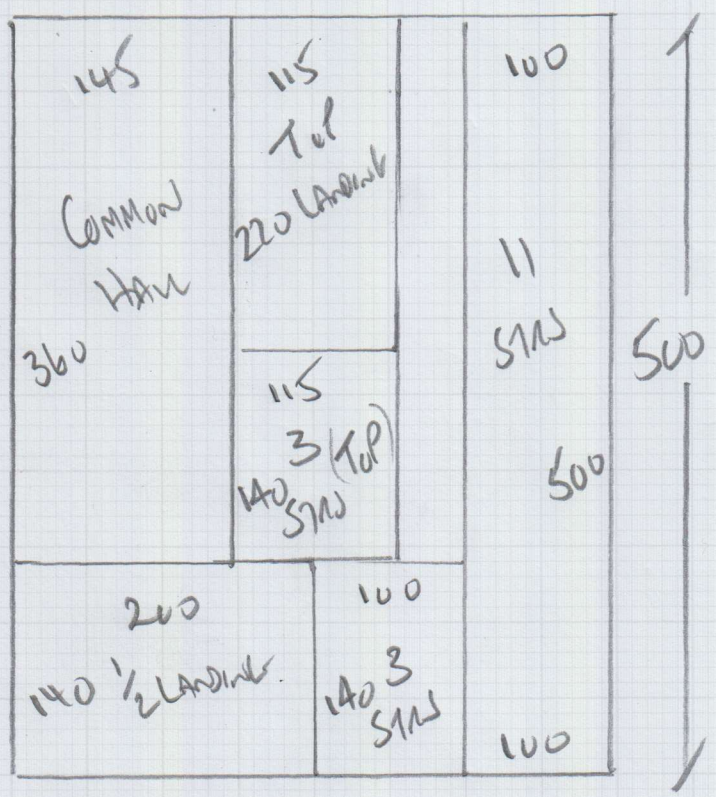 145
COMMON
HALL
360
115
TOP
220 LANDING
115
3 (TOP)
140 STRS
100
11
STRS
500
100
500
200
140 1/2 LANDING
100
140 3
STRS